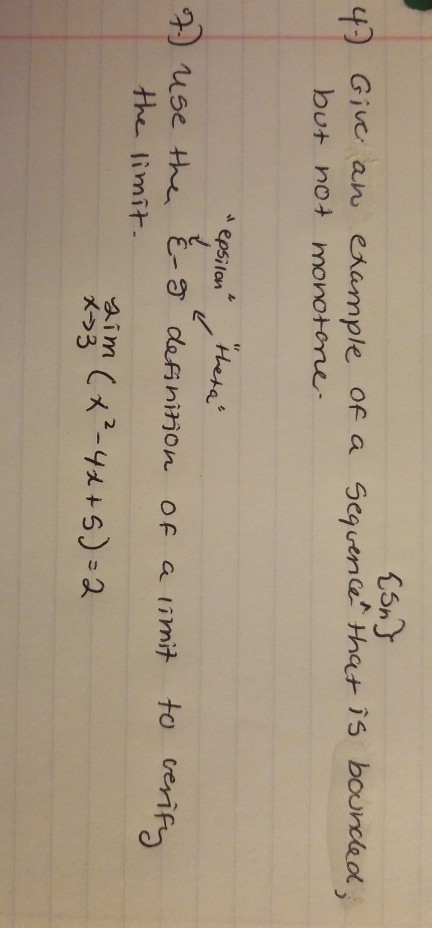 4.) Give an example of a sequence^ {Sn} that is bounded,
but not monotone.
"epsilon" "theta"
7.) Use the ε-δ definition of a limit to verify
the limit.
lim (x²-4x+5)=2
x→3